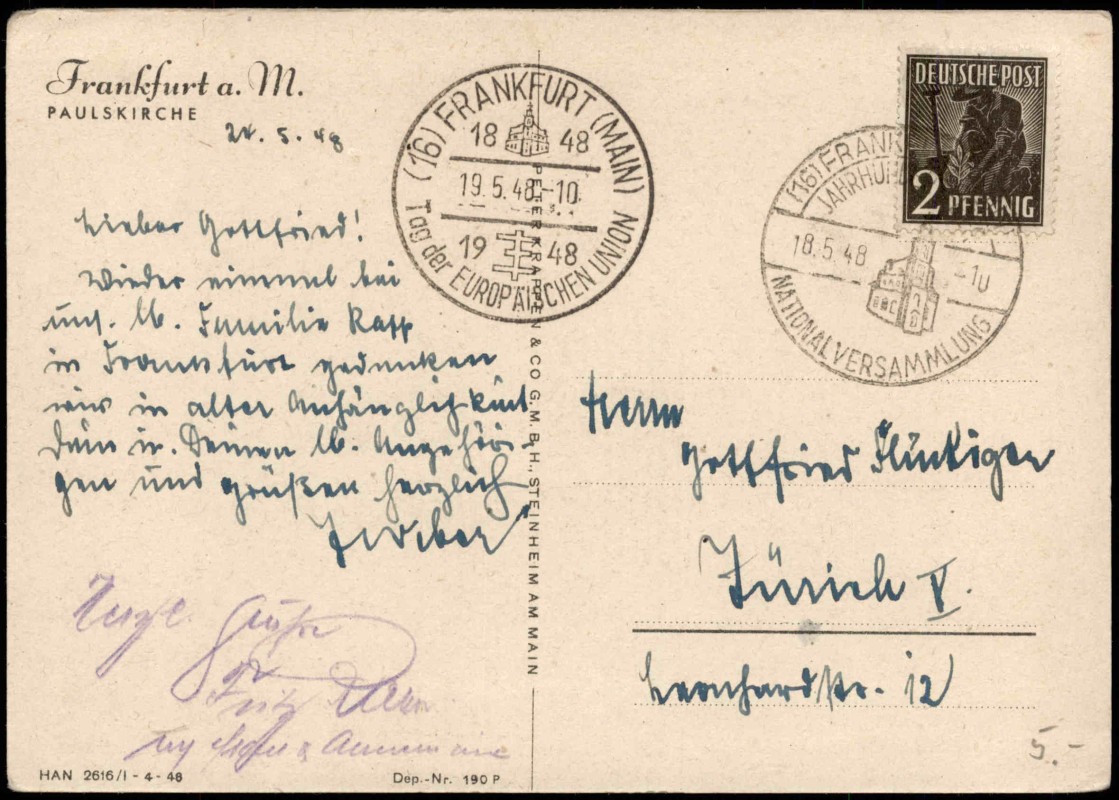 Frankfurt a. M.
PAULSKIRCHE
24. 5. 48
Lieber Gottfried!
Wieder einmal bei
uns. lb. Familie Rapp
in Frankfurt gedenken
wir in alter Anhänglichkeit
Dein u. Deinen lb. Angehöri-
gen und grüßen herzlich
Herzl. Grüße
Fritz
& Annemarie
HAN 2616/I - 4 - 48
Dep.-Nr. 190 P
PETER KRAPPEN & CO G.M.B.H., STEINHEIM AM MAIN
(16) FRANKFURT (MAIN)
18 48
19.5.48.-10
19 48
Tag der EUROPÄISCHEN UNION
DEUTSCHE POST
2 PFENNIG
(16) FRANK
JAHRHU
18.5.48 -10
NATIONALVERSAMMLUNG
Herrn
Gottfried Flückiger
Zürich V.
Bernhardstr. 12
5.-